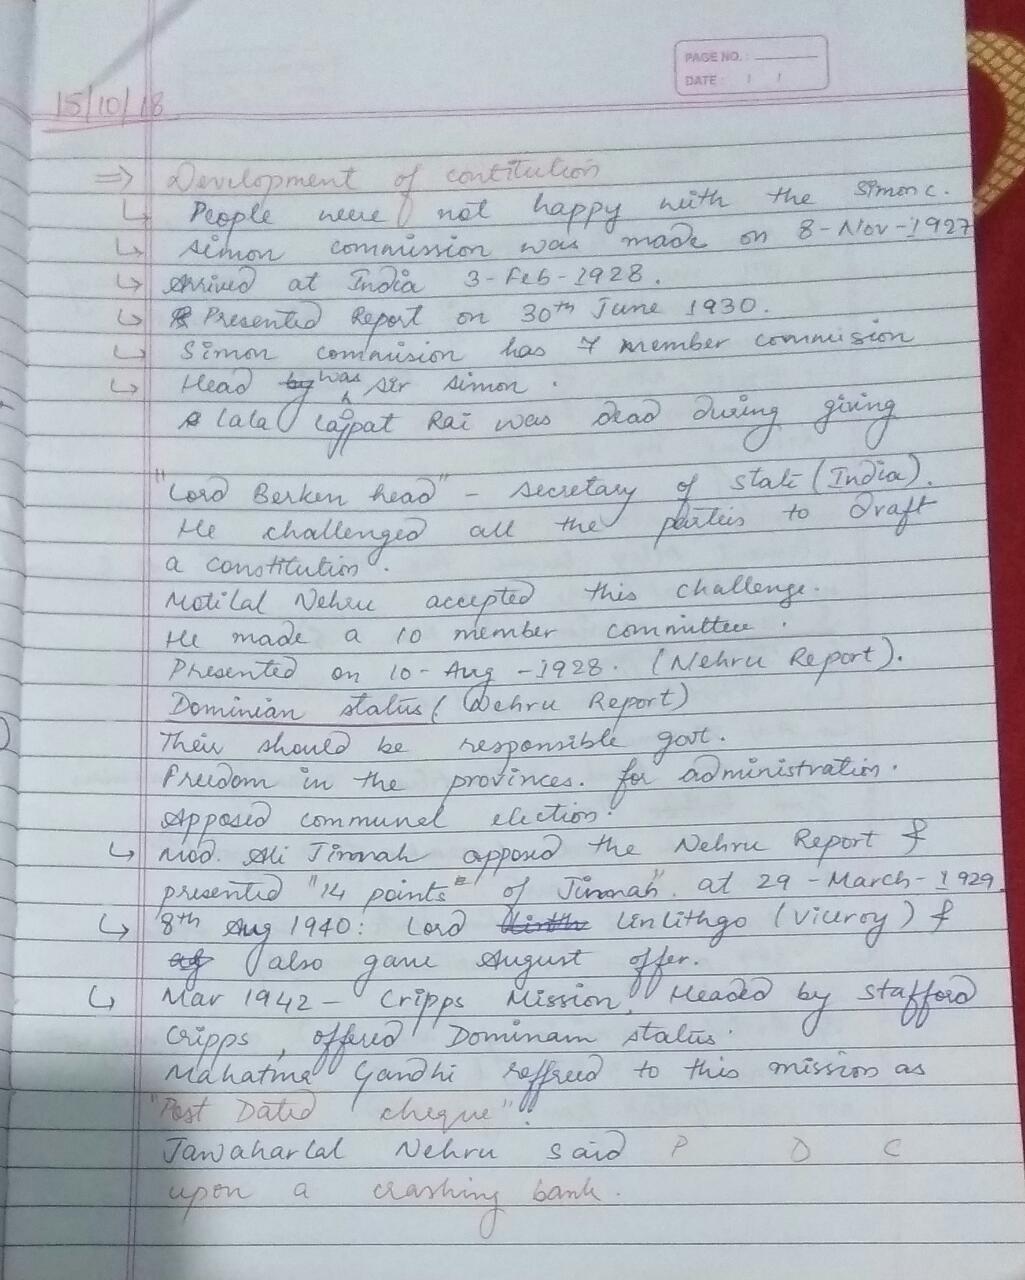 PAGE NO. :
DATE : / /
15/10/18
⇒ Development of contitution
↳ People were not happy with the Simon c.
↳ Simon commission was made on 8-Nov-1927
↳ Arrived at India 3-Feb-1928.
↳ Presented Report on 30th June 1930.
↳ Simon commision has 7 member commision
↳ Head was sir simon.
Lala Lajpat Rai was dead during giving
"Lord Berken head" - secretary of state (India).
He challenged all the parteis to Draft
a constitution.
Motilal Nehru accepted this challenge.
He made a 10 member committee.
Presented on 10-Aug-1928. (Nehru Report).
Dominian status (Nehru Report)
Their should be responsible govt.
Freedom in the provinces. for administration.
Apposed communel election.
↳ Mod. Ali Jinnah apposed the Nehru Report &
presented "14 points" of Jinnah". at 29-March-1929.
↳ 8th Aug 1940: Lord Linlithgo (Viceroy) &
also gave August offer.
↳ Mar 1942 - Cripps Mission, Headed by Stafford
Cripps, offered Dominam status.
Mahatma Gandhi reffreed to this mission as
"Post Dated cheque".
Jawaharlal Nehru said P D C
upon a crashing bank.